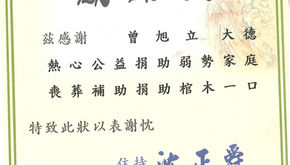 茲感謝 曾旭立 大德
熱心公益捐助弱勢家庭
喪葬補助捐助棺木一口
特致此狀以表謝忱
住持